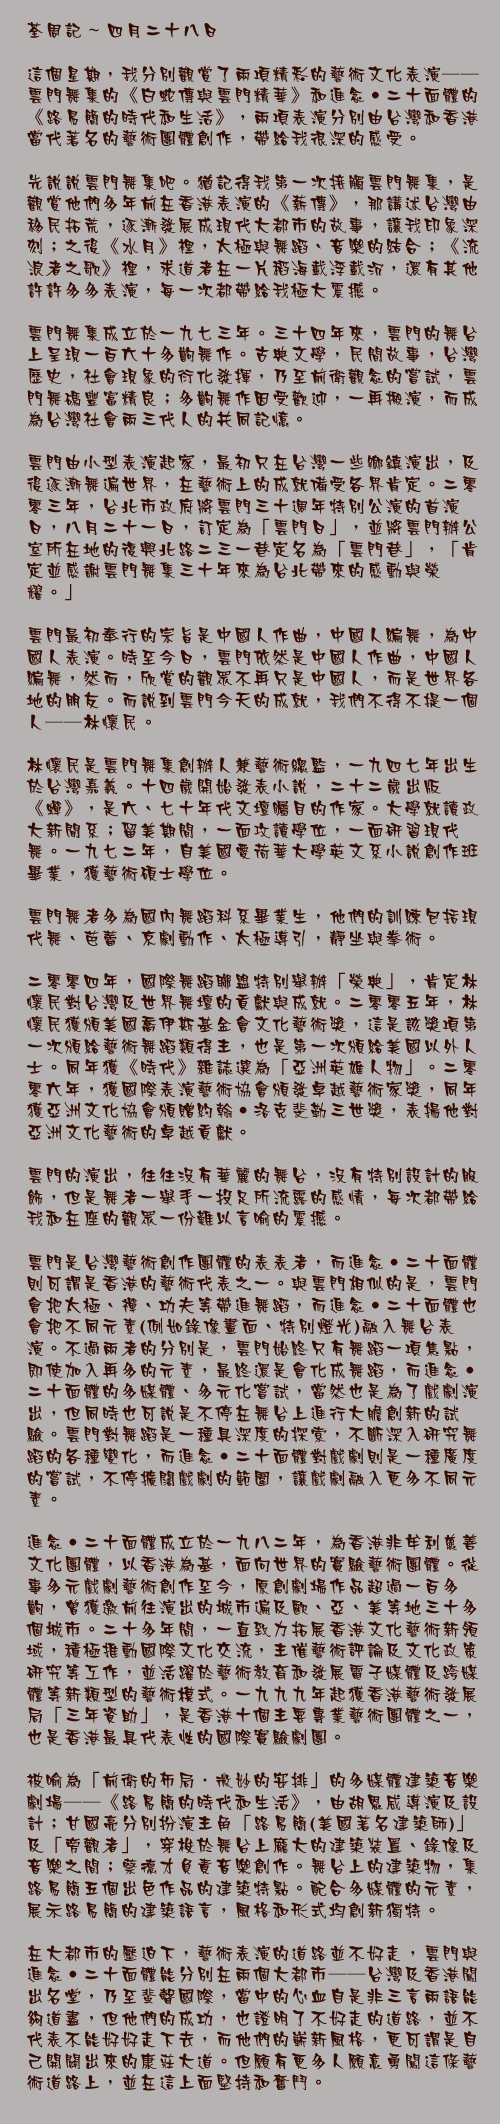 荃周記 ~ 四月二十八日
這個星期，我分別觀賞了兩項精彩的藝術文化表演——
雲門舞集的《白蛇傳與雲門精華》和進念•二十面體的
《路易簡的時代和生活》，兩項表演分別由台灣和香港
當代著名的藝術團體創作，帶給我很深的感受。
先說說雲門舞集吧。猶記得我第一次接觸雲門舞集，是
觀當他們多年前在香港表演的《薪傳》，那講述台灣由
移民拓荒，逐漸發展成現代大都市的故事，讓我印象深
刻；之後《水月》裡，太極與舞蹈、音樂的結合；《流
浪者之歌》裡，求道者在一片稻海載浮載沉，還有其他
許許多多表演，每一次都帶給我極大震撼。
雲門舞集成立於一九七三年。三十四年來，雲門的舞台
上呈現一百六十多齣舞作。古典文學，民間故事，台灣
歷史，社會現象的衍化發揮，乃至前衛觀念的嘗試，雲
門舞碼豐富精良；多齣舞作因受歡迎，一再搬演，而成
為台灣社會兩三代人的共同記憶。
雲門由小型表演起家，最初只在台灣一些鄉鎮演出，及
後逐漸舞遍世界，在藝術上的成就備受各界肯定。二零
零三年，台北市政府將雲門三十週年特別公演的首演
日，八月二十一日，訂定為「雲門日」，並將雲門辦公
室所在地的復興北路二三一巷定名為「雲門巷」，「肯
定並感謝雲門舞集三十年來為台北帶來的感動與榮
耀。」
雲門最初奉行的宗旨是中國人作曲，中國人編舞，為中
國人表演。時至今日，雲門依然是中國人作曲，中國人
編舞，然而，欣賞的觀眾不再只是中國人，而是世界各
地的朋友。而說到雲門今天的成就，我們不得不提一個
人——林懷民。
林懷民是雲門舞集創辦人兼藝術總監，一九四七年出生
於台灣嘉義。十四歲開始發表小說，二十二歲出版
《蟬》，是六、七十年代文壇矚目的作家。大學就讀政
大新聞系；留美期間，一面攻讀學位，一面研習現代
舞。一九七二年，自美國愛荷華大學英文系小說創作班
畢業，獲藝術碩士學位。
雲門舞者多為國內舞蹈科系畢業生，他們的訓練包括現
代舞、芭蕾、京劇動作、太極導引，靜坐與拳術。
二零零四年，國際舞蹈聯盟特別舉辦「榮典」，肯定林
懷民對台灣及世界舞壇的貢獻與成就。二零零五年，林
懷民獲頒美國喬伊斯基金會文化藝術獎，這是該獎項第
一次頒給藝術舞蹈類得主，也是第一次頒給美國以外人
士。同年獲《時代》雜誌選為「亞洲英雄人物」。二零
零六年，獲國際表演藝術協會頒發卓越藝術家獎，同年
獲亞洲文化協會頒贈約翰•洛克斐勒三世獎，表揚他對
亞洲文化藝術的卓越貢獻。
雲門的演出，往往沒有華麗的舞台，沒有特別設計的服
飾，但是舞者一舉手一投足所流露的感情，每次都帶給
我和在座的觀眾一份難以言喻的震撼。
雲門是台灣藝術創作團體的表表者，而進念•二十面體
則可謂是香港的藝術代表之一。與雲門相似的是，雲門
會把太極、禪、功夫等帶進舞蹈，而進念•二十面體也
會把不同元素(例如錄像畫面、特別燈光)融入舞台表
演。不過兩者的分別是，雲門始終只有舞蹈一項焦點，
即使加入再多的元素，最終還是會化成舞蹈，而進念•
二十面體的多媒體、多元化嘗試，當然也是為了戲劇演
出，但同時也可說是不停在舞台上進行大膽創新的試
驗。雲門對舞蹈是一種具深度的探索，不斷深入研究舞
蹈的各種變化，而進念•二十面體對戲劇則是一種廣度
的嘗試，不停擴闊戲劇的範圍，讓戲劇融入更多不同元
素。
進念•二十面體成立於一九八二年，為香港非牟利慈善
文化團體，以香港為基，面向世界的實驗藝術團體。從
事多元戲劇藝術創作至今，原創劇場作品超過一百多
齣，曾獲邀前往演出的城市遍及歐、亞、美等地三十多
個城市。二十多年間，一直致力拓展香港文化藝術新領
域，積極推動國際文化交流，主催藝術評論及文化政策
研究等工作，並活躍於藝術教育和發展電子媒體及跨媒
體等新類型的藝術模式。一九九九年起獲香港藝術發展
局「三年資助」，是香港十個主要專業藝術團體之一，
也是香港最具代表性的國際實驗劇團。
被喻為「前衛的布局．微妙的安排」的多媒體建築音樂
劇場——《路易簡的時代和生活》，由胡恩威導演及設
計；甘國亮分別扮演主角「路易簡(美國著名建築師)」
及「旁觀者」，穿梭於舞台上龐大的建築裝置、錄像及
音樂之間；蔡德才負責音樂創作。舞台上的建築物，集
路易簡五個出色作品的建築特點。配合多媒體的元素，
展示路易簡的建築語言，風格和形式均創新獨特。
在大都市的壓迫下，藝術表演的道路並不好走，雲門與
進念•二十面體能分別在兩個大都市——台灣及香港闖
出名堂，乃至蜚聲國際，當中的心血自是非三言兩語能
夠道盡，但他們的成功，也證明了不好走的道路，並不
代表不能好好走下去，而他們的嶄新風格，更可謂是自
己開闢出來的康莊大道。但願有更多人願意勇闖這條藝
術道路上，並在這上面堅持和奮鬥。